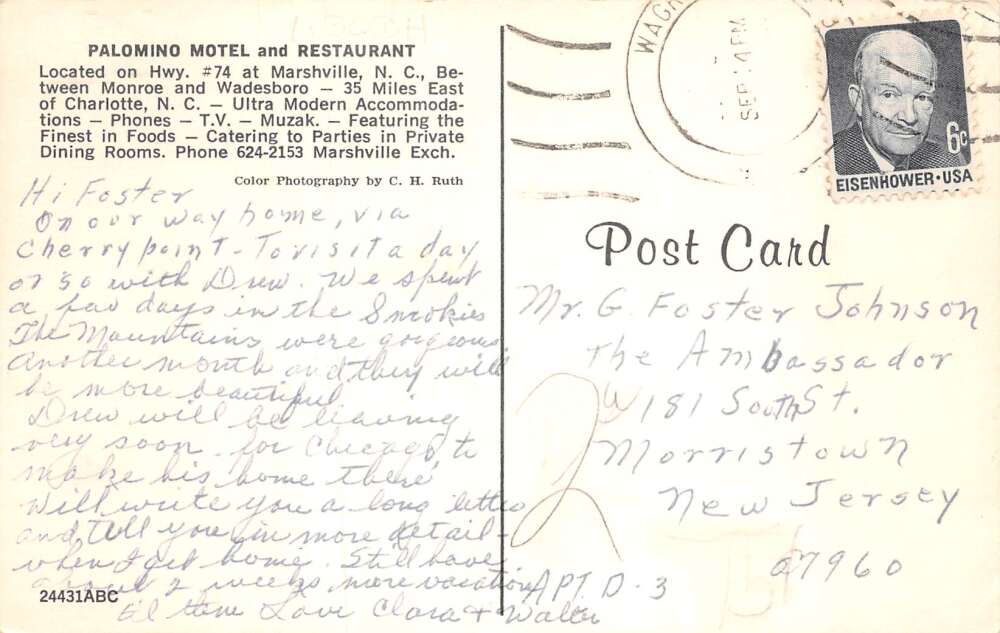 PALOMINO MOTEL and RESTAURANT
Located on Hwy. #74 at Marshville, N. C., Be-
tween Monroe and Wadesboro — 35 Miles East
of Charlotte, N. C. — Ultra Modern Accommoda-
tions — Phones — T.V. — Muzak. — Featuring the
Finest in Foods — Catering to Parties in Private
Dining Rooms. Phone 624-2153 Marshville Exch.
Color Photography by C. H. Ruth
Hi Foster
On our way home, via
Cherry point - To visit a day
or so with Drew. We spent
a few days in the Smokies
The Mountains were gorgeous
Another month and they will
be more beautiful
Drew will be leaving
very soon for Chicago, to
make his home there
Will write you a long letter
and tell you in more detail -
when I get home. Still have
about 2 weeks more vacation
til then Love Clara + Walter
24431ABC
WAGR
SEP 14 PM
6c
EISENHOWER·USA
Post Card
Mr. G. Foster Johnson
The Ambassador
W 181 South St.
Morristown
New Jersey
07960
APT. D-3